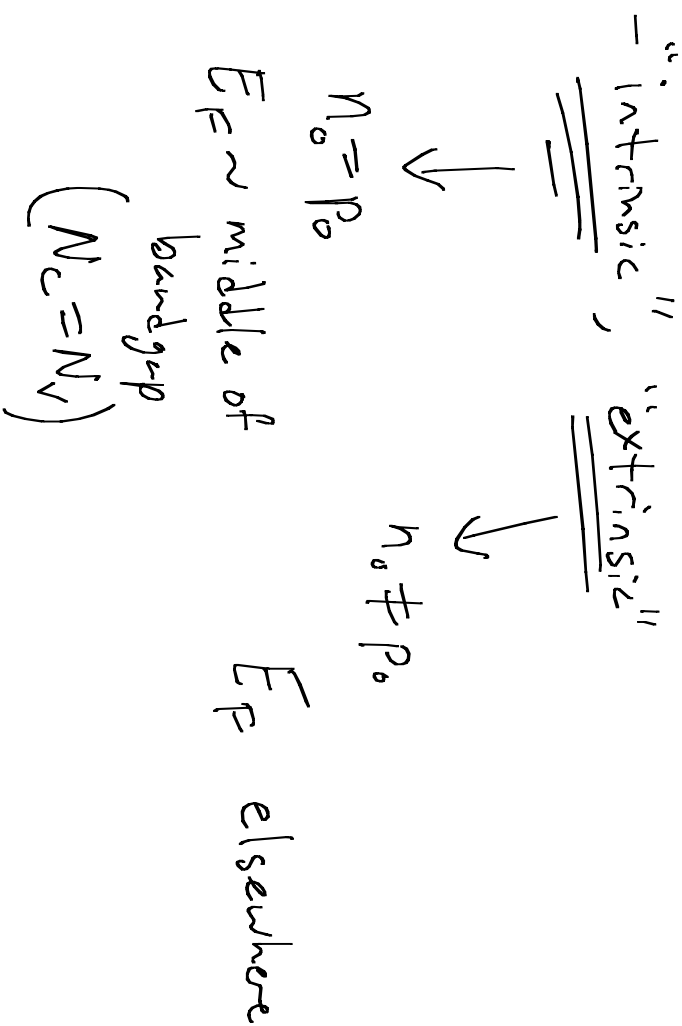 - "intrinsic", "extrinsic"
n₀ = p₀
n₀ ≠ p₀
E_F ~ middle of
bandgap
(N_C = N_V)
E_F elsewhere